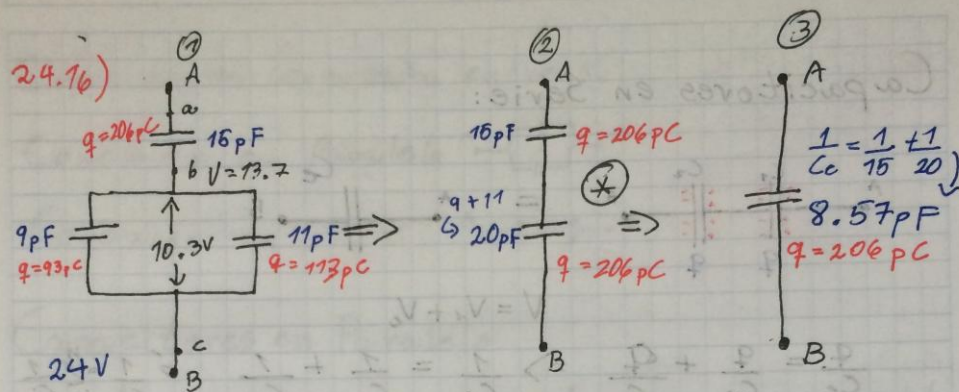 24.16)
①
A
a
q = 206pC
15pF
b V = 13.7
9pF
q = 93pC
10.3V
11pF
q = 113pC
c
24V
B
⇒
②
A
15pF
q = 206pC
9 + 11
↳ 20pF
q = 206pC
B
*
⇒
③
A
1/Ce = 1/15 + 1/20
8.57pF
q = 206pC
B
Capacitores en Serie:
V = V₁ + V₂